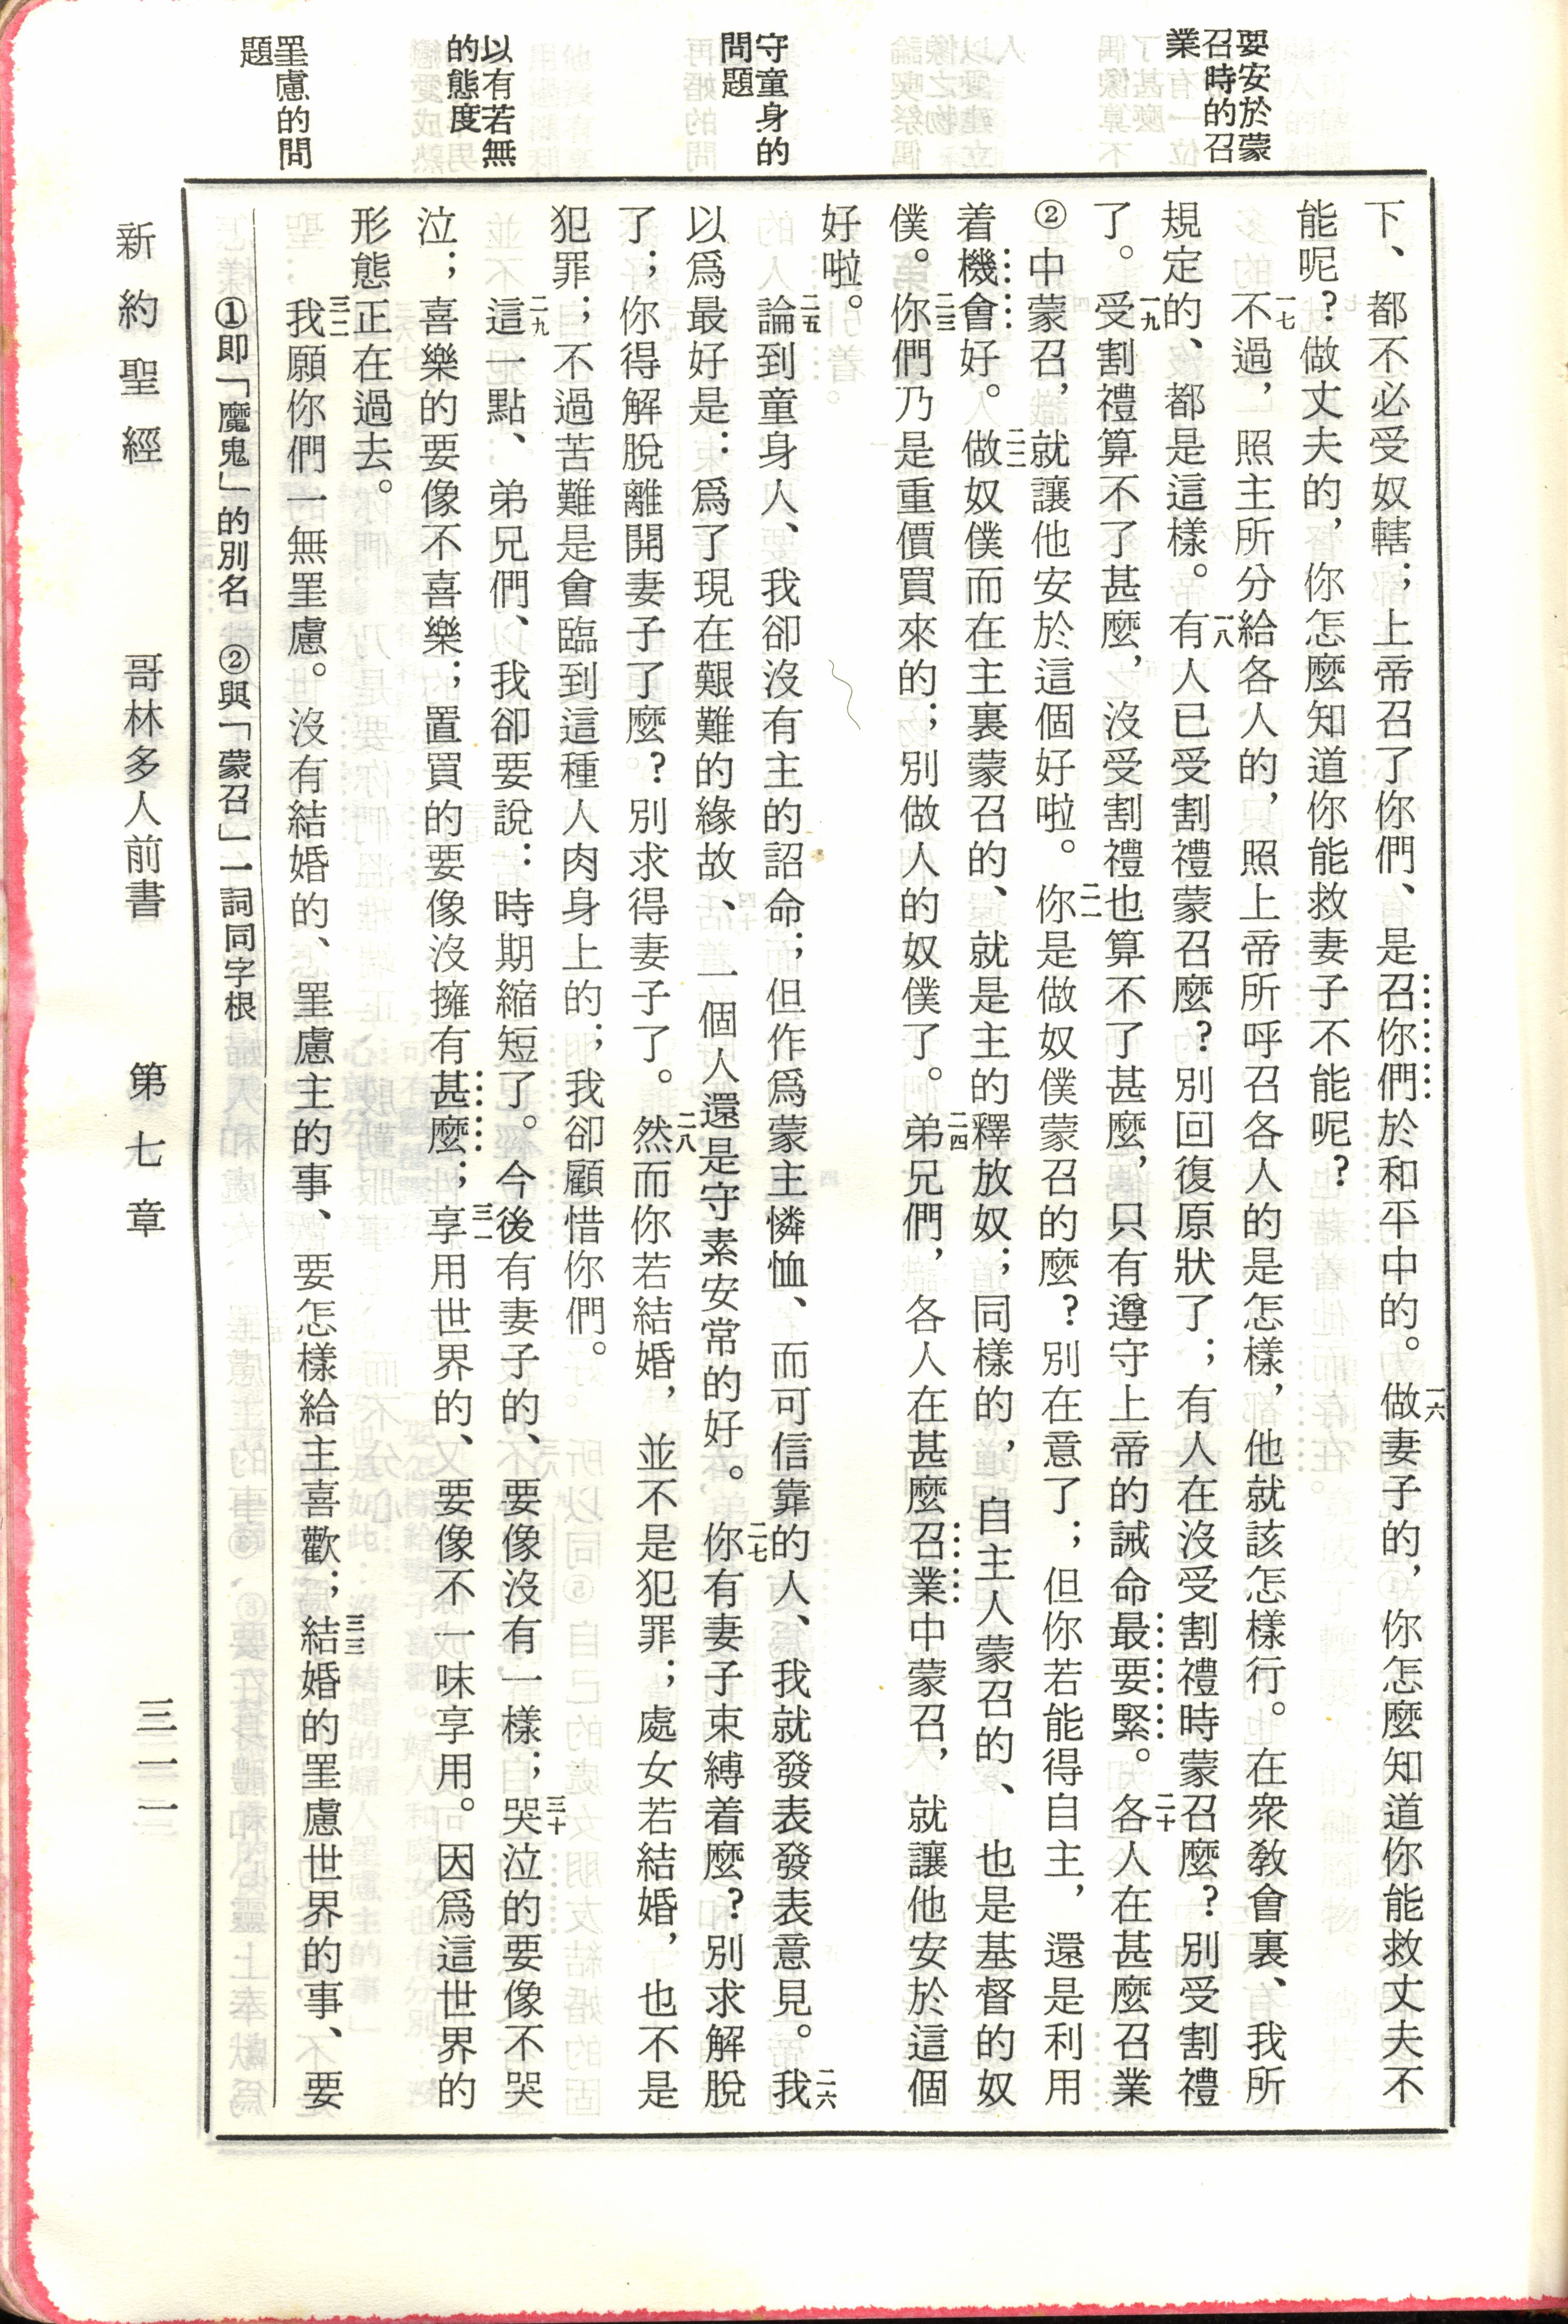 要安於蒙
召時的召
業
守童身的
問題
以有若無
的態度
罣慮的問
題
下、都不必受奴轄；上帝召了你們、是召你們於和平中的。一六做妻子的，你怎麼知道你能救丈夫不
能呢？做丈夫的，你怎麼知道你能救妻子不能呢？
一七不過，照主所分給各人的，照上帝所呼召各人的是怎樣，他就該怎樣行。在衆敎會裏、我所
規定的、都是這樣。一八有人已受割禮蒙召麼？別回復原狀了；有人在沒受割禮時蒙召麼？別受割禮
了。一九受割禮算不了甚麼，沒受割禮也算不了甚麼，只有遵守上帝的誡命最要緊。二十各人在甚麼召業
②中蒙召，就讓他安於這個好啦。二一你是做奴僕蒙召的麼？別在意了；但你若能得自主，還是利用
着機會好。二二做奴僕而在主裏蒙召的、就是主的釋放奴；同樣的，自主人蒙召的、也是基督的奴
僕。二三你們乃是重價買來的；別做人的奴僕了。二四弟兄們，各人在甚麼召業中蒙召，就讓他安於這個
好啦。
二五論到童身人、我卻沒有主的詔命；但作爲蒙主憐恤、而可信靠的人、我就發表發表意見。二六我
以爲最好是：爲了現在艱難的緣故、一個人還是守素安常的好。二七你有妻子束縛着麼？別求解脫
了；你得解脫離開妻子了麼？別求得妻子了。二八然而你若結婚，並不是犯罪；處女若結婚，也不是
犯罪；不過苦難是會臨到這種人肉身上的；我卻顧惜你們。
二九這一點、弟兄們、我卻要說：時期縮短了。今後有妻子的、要像沒有一樣；三十哭泣的要像不哭
泣；喜樂的要像不喜樂；置買的要像沒擁有甚麼；三一享用世界的、要像不一味享用。因爲這世界的
形態正在過去。
三二我願你們一無罣慮。沒有結婚的、罣慮主的事、要怎樣給主喜歡；三三結婚的罣慮世界的事、要
①即「魔鬼」的別名　②與「蒙召」一詞同字根
新約聖經　哥林多人前書　第七章　三一一